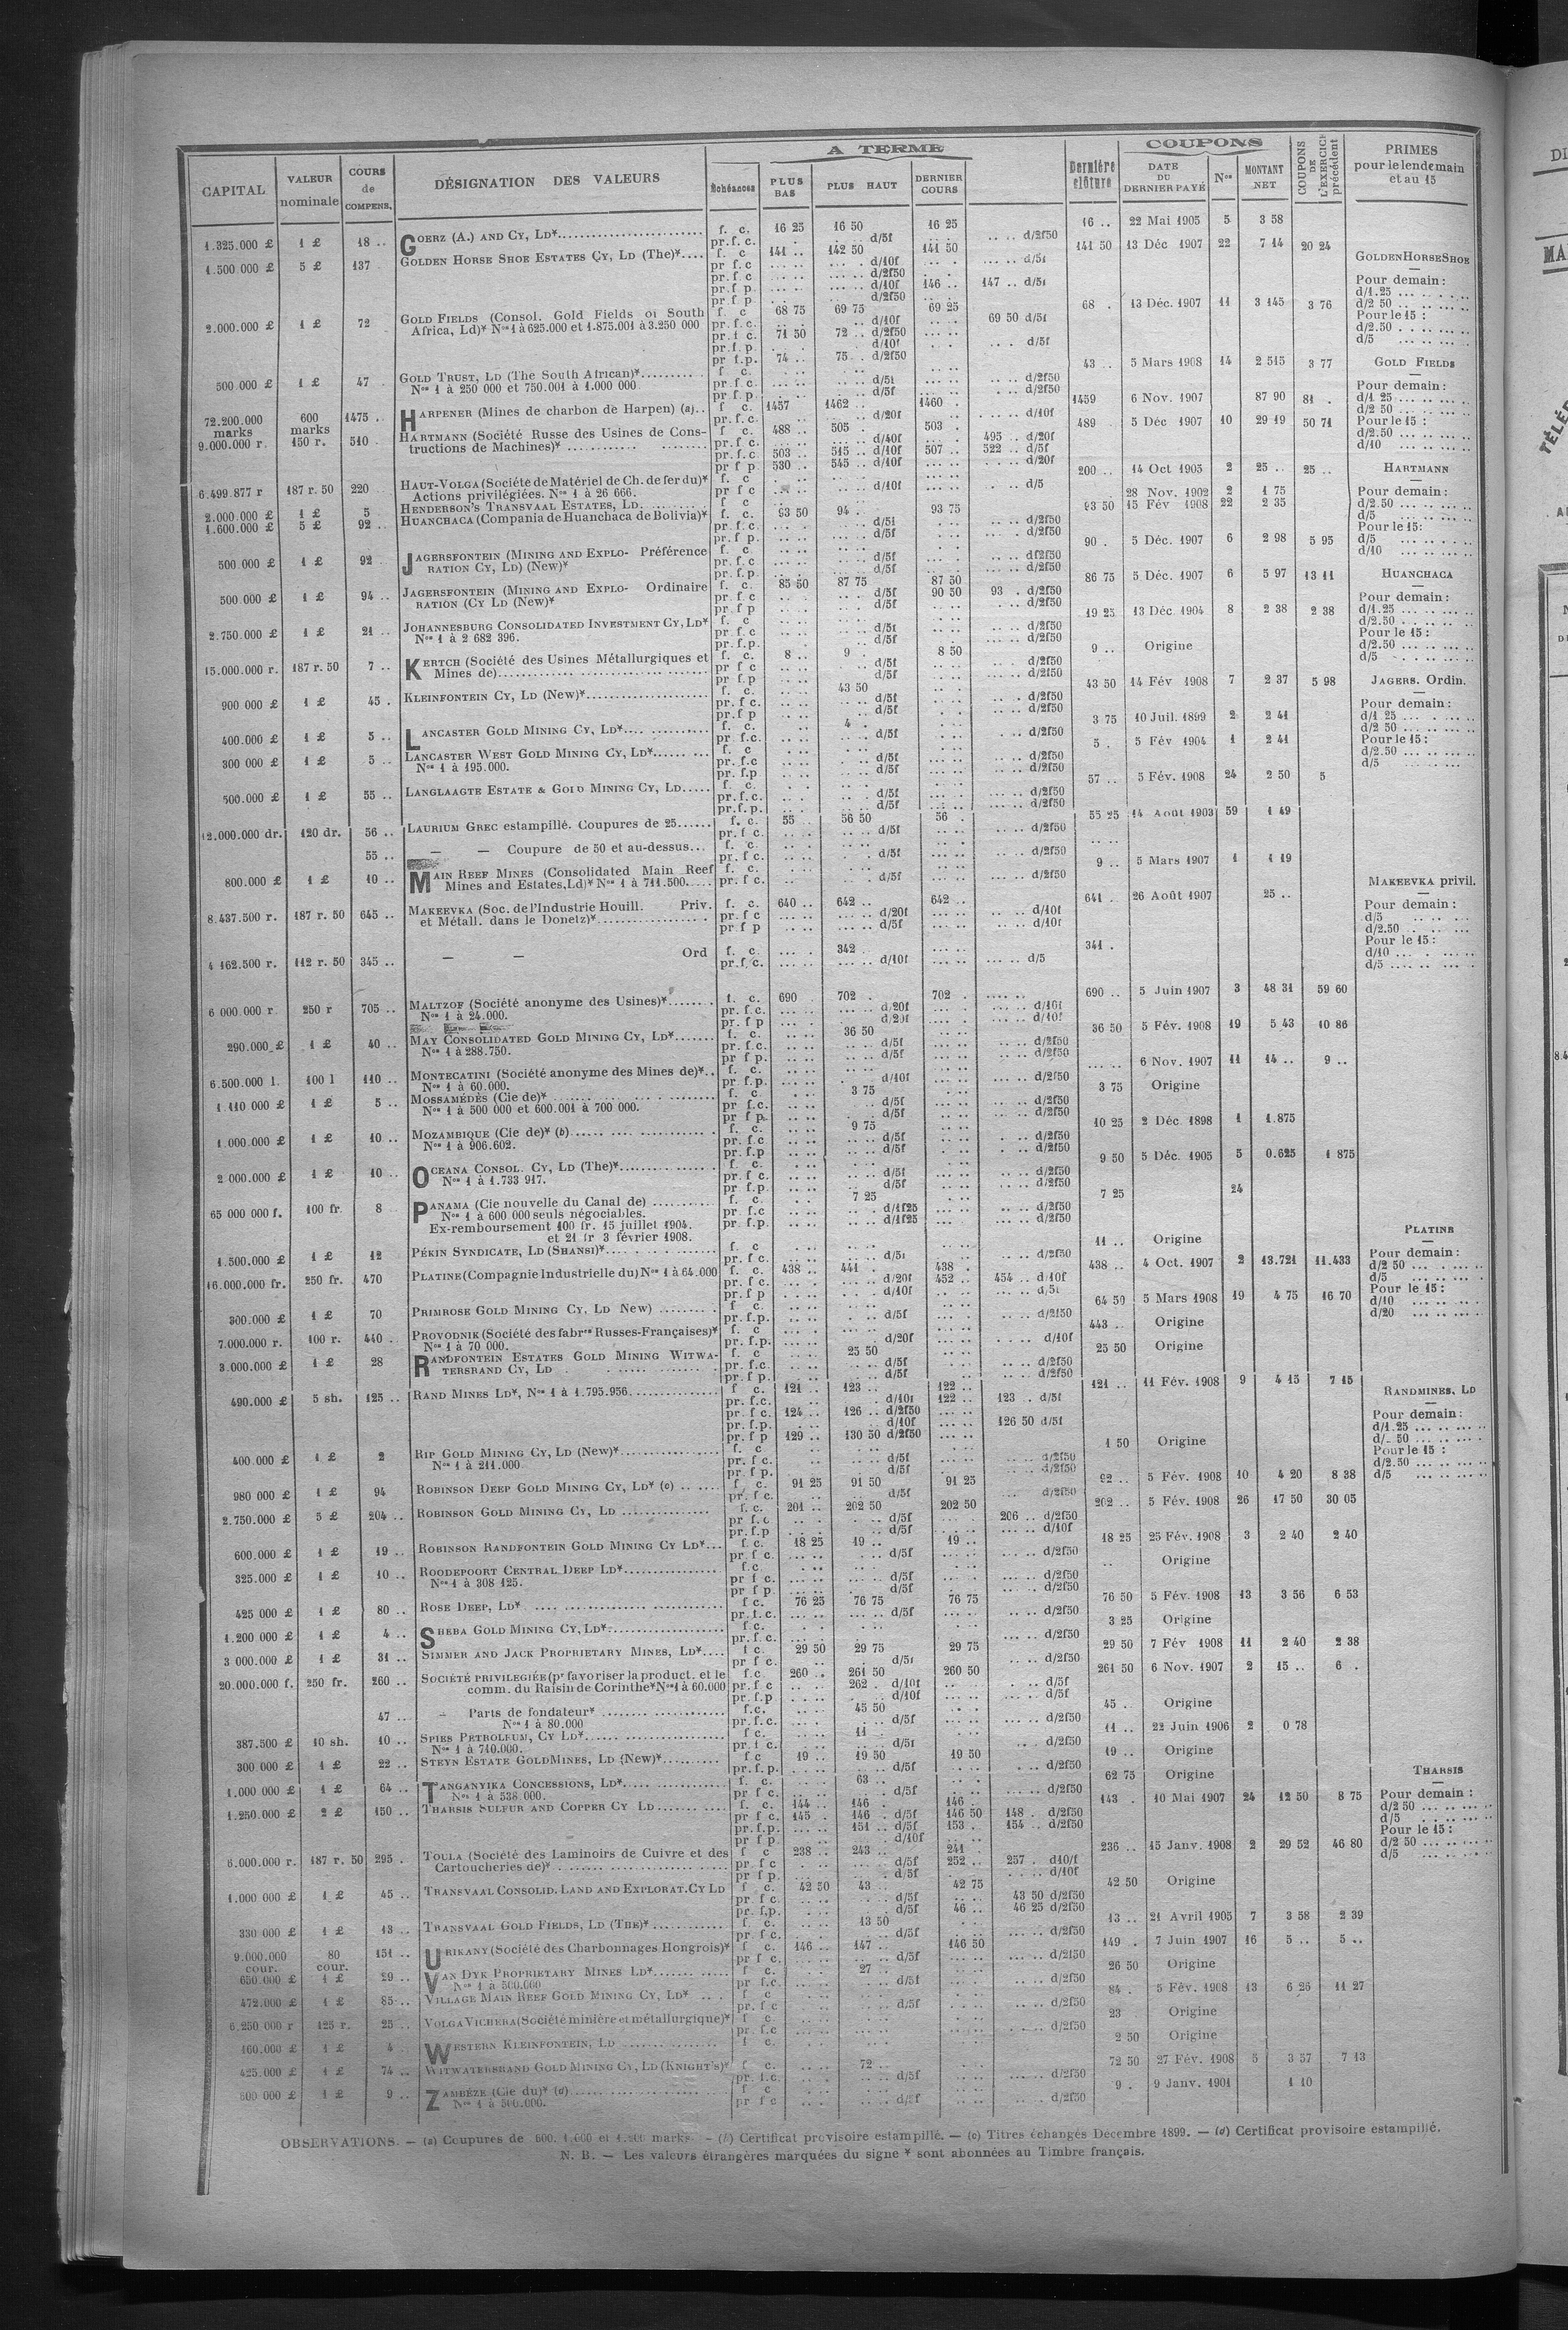 A TERME
COUPONS
CAPITAL
VALEUR nominale
COURS de COMPENS.
DÉSIGNATION DES VALEURS
Échéances
PLUS BAS
PLUS HAUT
DERNIER COURS
Dernière clôture
DATE DU DERNIER PAYÉ
Nos
MONTANT NET
COUPONS DE L'EXERCICE précédent
PRIMES pour le lendemain et au 15
1.325.000 £ 1 £ 18 .. GOERZ (A.) AND CY, LD* f. c. 16 25 16 50 16 25 16 .. 22 Mai 1905 5 3 58
pr. f. c. d/5f d/2f50
1.500 000 £ 5 £ 137 GOLDEN HORSE SHOE ESTATES CY, LD (The)* f. c 141 .. 142 50 141 50 141 50 13 Déc 1907 22 7 14 20 24
pr f. c d/10f d/5f
pr f. c d/2f50
pr f p. d/10f 146 .. 147 .. d/5f
pr f p. d/2f50
2.000.000 £ 1 £ 72 GOLD FIELDS (Consol. Gold Fields of South f. c 68 75 69 75 69 25 68 . 13 Déc. 1907 11 3 145 3 76
Africa, Ld)* Nos 1 à 625.000 et 1.875.001 à 3.250 000 pr. f. c. d/10f 69 50 d/5f
pr. f c. 71 50 72 .. d/2f50
pr. f. p. d/10f d/5f
pr f.p. 74 .. 75 . d/2f50
500 000 £ 1 £ 47 GOLD TRUST, LD (The South African)* f c. 43 .. 5 Mars 1908 14 2 515 3 77
Nos 1 à 250 000 et 750.001 à 1.000 000 pr. f. c. d/5f d/2f50
pr. f p. d/5f d/2f50
72.200.000 marks 600 marks 1475 . HARPENER (Mines de charbon de Harpen) (a) f c. 1457 1462 .. 1460 . 1459 6 Nov. 1907 87 90 81 .
pr. f. c. d/20f d/10f
9.000.000 r. 150 r. 510 HARTMANN (Société Russe des Usines de Cons- f c. 488 .. 505 503 . 489 5 Déc 1907 10 29 19 50 71
tructions de Machines)* pr. f. c. d/40f 495 .. d/20f
pr. f. c 503 .. 515 .. d/10f 507 .. 522 .. d/5f
pr f p 530 .. 545 .. d/10f d/20f
6.499.877 r 187 r. 50 220 HAUT-VOLGA (Société de Matériel de Ch. de fer du)* f. c 200 .. 14 Oct 1905 2 25 .. 25 ..
Actions privilégiées. Nos 1 à 26 666. pr f c d/10f d/5
2.000.000 £ 1 £ 5 HENDERSON'S TRANSVAAL ESTATES, LD f c 28 Nov. 1902 2 1 75
1.600.000 £ 5 £ 92 .. HUANCHACA (Compania de Huanchaca de Bolivia)* f. c. 93 50 94 . 93 75 93 50 15 Fév 1908 22 2 35
pr. f. c. d/5f d/2f50
pr f p. d/5f d/2f50
500.000 £ 1 £ 92 JAGERSFONTEIN (MINING AND EXPLO- Préférence f. c. 90 . 5 Déc. 1907 6 2 98 5 95
RATION CY, LD) (New)* pr. f. c d/5f d/2f50
pr. f. p. d/5f d/2f50
500.000 £ 1 £ 94 .. JAGERSFONTEIN (MINING AND EXPLO- Ordinaire f. c. 85 50 87 75 87 50 86 75 5 Déc. 1907 6 5 97 13 11
RATION (CY LD (New)* pr. f. c d/5f 90 50 93 . d/2f50
pr f p d/5f d/2f50
2.750.000 £ 1 £ 21 .. JOHANNESBURG CONSOLIDATED INVESTMENT CY, LD* f. c 19 25 13 Déc. 1904 8 2 38 2 38
Nos 1 à 2 682 396. pr. f. c d/5f d/2f50
pr. f.p. d/5f d/2f50
15.000.000 r. 187 r. 50 7 .. KERTCH (Société des Usines Métallurgiques et f. c. 8 .. 9 . 8 50 9 .. Origine
Mines de) pr f c d/5f d/2f50
pr f p d/5f d/2f50
900 000 £ 1 £ 45 . KLEINFONTEIN CY, LD (New)* f. c. 43 50 43 50 14 Fév 1908 7 2 37 5 98
pr. f c. d/5f d/2f50
pr. f p d/5f d/2f50
400.000 £ 1 £ 5 .. LANCASTER GOLD MINING CY, LD* f. c. 4 . 3 75 10 Juil. 1899 2 2 41
pr. f.c. d/5f d/2f50
300 000 £ 1 £ 5 .. LANCASTER WEST GOLD MINING CY, LD* f. c 5 . 5 Fév 1904 1 2 41
Nos 1 à 195.000. pr. f.c d/5f d/2f50
pr. f.p d/5f d/2f50
500.000 £ 1 £ 55 .. LANGLAAGTE ESTATE & GOLD MINING CY, LD f. c. 57 .. 5 Fév. 1908 24 2 50 5
pr. f. c. d/5f d/2f50
pr. f. p. d/5f d/2f50
12.000.000 dr. 120 dr. 56 .. LAURIUM GREC estampillé. Coupures de 25 f. c. 55 56 50 56 . 55 25 14 Août 1903 59 1 49
pr. f c. d/5f d/2f50
55 .. — — Coupure de 50 et au-dessus f. c.
pr. f c. d/5f d/2f50
800.000 £ 1 £ 10 .. MAIN REEF MINES (Consolidated Main Reef f. c. 9 .. 5 Mars 1907 1 1 19
Mines and Estates, Ld)* Nos 1 à 711.500 pr. f c. d/5f d/2f50
8.437.500 r. 187 r. 50 645 .. MAKEEVKA (Soc. de l'Industrie Houill. Priv. f. c. 640 .. 642 .. 642 .. 641 . 26 Août 1907 25 ..
et Métall. dans le Donetz)* pr. f c d/20f d/10f
pr f p d/5f d/10f
4 162.500 r. 112 r. 50 345 .. — — Ord f. c. 342 . 341 .
pr.f. c. d/10f d/5
6 000.000 r. 250 r 705 .. MALTZOF (Société anonyme des Usines)* f. c. 690 702 . 702 . 690 .. 5 Juin 1907 3 48 31 59 60
Nos 1 à 24.000. pr. f.c. d/20f d/10f
pr. f p d/20f d/10f
290.000 £ 1 £ 40 .. MAY CONSOLIDATED GOLD MINING CY, LD* f. c. 36 50 36 50 5 Fév. 1908 19 5 43 10 86
Nos 1 à 288.750. pr. f.c. d/5f d/2f50
pr f p. d/5f d/2f50
6.500.000 l. 100 l 110 .. MONTECATINI (Société anonyme des Mines de)* f. c. 6 Nov. 1907 11 14 .. 9 ..
Nos 1 à 60.000. pr. f.p. d/10f d/2f50
1.110 000 £ 1 £ 5 .. MOSSAMÉDÈS (Cie de)* f. c. 3 75 3 75 Origine
Nos 1 à 500 000 et 600.001 à 700 000. pr f.c. d/5f d/2f50
pr f p. d/5f d/2f50
1.000.000 £ 1 £ 10 .. MOZAMBIQUE (Cie de)* (b) f. c. 9 75 10 25 2 Déc. 1898 1 1.875
Nos 1 à 906.602. pr. f c d/5f d/2f50
pr. f.p d/5f d/2f50
2 000.000 £ 1 £ 10 .. OCEANA CONSOL. CY, LD (The)* f. c. 9 50 5 Déc. 1905 5 0.625 1 875
Nos 1 à 1.733 917. pr. f c. d/5f d/2f50
pr. f.p. d/5f d/2f50
65 000 000 f. 100 fr. 8 PANAMA (Cie nouvelle du Canal de) f. c. 7 25 7 25 24
Nos 1 à 600 000 seuls négociables. pr. f.c d/1f25 d/2f50
Ex-remboursement 100 fr. 15 juillet 1904. pr. f.p. d/1f25 d/2f50
et 21 fr 3 février 1908.
1.500.000 £ 1 £ 12 PÉKIN SYNDICATE, LD (SHANSI)* f. c 11 .. Origine
pr. f c. d/5f d/2f50
16.000.000 fr. 250 fr. 470 PLATINE (Compagnie Industrielle du) Nos 1 à 64.000 f. c. 438 .. 441 . 438 . 438 .. 4 Oct. 1907 2 13.721 11.433
pr. f c. d/20f 452 .. 454 .. d/10f
pr. f p d/10f d/5f
300.000 £ 1 £ 70 PRIMROSE GOLD MINING CY, LD New) f c 64 50 5 Mars 1908 19 4 75 16 70
pr. f.p. d/5f d/2f50
7.000.000 r. 100 r. 440 PROVODNIK (Société des fabres Russes-Françaises)* f. c 443 .. Origine
Nos 1 à 70 000. pr. f.p. d/20f d/10f
3.000.000 £ 1 £ 28 RANDFONTEIN ESTATES GOLD MINING WITWA- f. c 25 50 25 50 Origine
TERSRAND CY, LD pr. f.c. d/5f d/2f50
pr. f p. d/5f d/2f50
490.000 £ 5 sh. 125 .. RAND MINES LD*, Nos 1 à 1.795.956 f c. 121 .. 123 .. 122 .. 121 .. 11 Fév. 1908 9 4 15 7 15
pr. f.c. d/10f 122 .. 123 . d/5f
pr. f c. 124 .. 126 .. d/2f50
pr. f.p. d/10f 126 50 d/5f
pr. f p 129 .. 130 50 d/2f50
400.000 £ 1 £ 2 RIP GOLD MINING CY, LD (New)* f. c 1 50 Origine
Nos 1 à 211.000 pr. f c. d/5f d/2f50
pr f p. d/5f d/2f50
980 000 £ 1 £ 94 ROBINSON DEEP GOLD MINING CY, LD* (c) f c. 91 25 91 50 91 25 92 .. 5 Fév. 1908 10 4 20 8 38
pr. f c. d/5f d/2f50
2.750.000 £ 5 £ 204 .. ROBINSON GOLD MINING CY, LD f.c. 201 .. 202 50 202 50 202 .. 5 Fév. 1908 26 17 50 30 05
pr f.c d/5f 206 .. d/2f50
pr. f.p d/5f d/10f
600.000 £ 1 £ 19 .. ROBINSON RANDFONTEIN GOLD MINING CY LD* f.c. 18 25 19 .. 19 .. 18 25 25 Fév. 1908 3 2 40 2 40
pr. f c. d/5f d/2f50
325.000 £ 1 £ 10 .. ROODEPOORT CENTRAL DEEP LD* f.c Origine
Nos 1 à 308 125. pr f c. d/5f d/2f50
pr f p. d/5f d/2f50
425 000 £ 1 £ 80 .. ROSE DEEP, LD* f c. 76 25 76 75 76 75 76 50 5 Fév. 1908 13 3 56 6 53
pr. f.c. d/5f d/2f50
1.200 000 £ 1 £ 4 .. SHEBA GOLD MINING CY, LD* f.c. 3 25 Origine
pr. f. c. d/2f50
3 000.000 £ 1 £ 31 .. SIMMER AND JACK PROPRIETARY MINES, LD* f c. 29 50 29 75 29 75 29 50 7 Fév 1908 11 2 40 2 38
pr f c. d/5f d/2f50
20.000.000 f. 250 fr. 260 .. SOCIÉTÉ PRIVILEGIÉE (pr favoriser la product. et le f.c. 260 .. 261 50 260 50 261 50 6 Nov. 1907 2 15 .. 6 .
comm. du Raisin de Corinthe* Nos 1 à 60.000 pr. f c 262 . d/10f d/5f
pr. f.p d/10f d/5f
47 .. — Parts de fondateur* f.c. 45 50 45 .. Origine
Nos 1 à 80.000 pr. f.c. d/5f d/2f50
387.500 £ 10 sh. 10 .. SPIES PETROLEUM, CY LD* f c. 11 . 11 .. 22 Juin 1906 2 0 78
Nos 1 à 710.000. pr. f c. d/5f d/2f50
300 000 £ 1 £ 22 .. STEYN ESTATE GOLD MINES, LD (New)* f.c 19 .. 19 50 19 50 19 .. Origine
pr. f.p. d/5f d/2f50
1.000 000 £ 1 £ 64 .. TANGANYIKA CONCESSIONS, LD* f. c. 63 .. 62 75 Origine
Nos 1 à 538.000. pr f c. d/5f d/2f50
1.250.000 £ 2 £ 150 .. THARSIS SULFUR AND COPPER CY LD f. c. 144 .. 146 . 146 . 143 . 10 Mai 1907 24 12 50 8 75
pr f c. 145 . 146 . d/5f 146 50 148 . d/2f50
pr. f.p. 151 .. d/5f 153 . 154 .. d/2f50
pr f p. d/10f
6.000.000 r. 187 r. 50 295 . TOULA (Société des Laminoirs de Cuivre et des f c 238 .. 243 .. 241 . 236 .. 15 Janv. 1908 2 29 52 46 80
Cartoucheries de)* pr f c d/5f 252 .. 257 . d10/f
pr f p. d/5f d/10f
1.000 000 £ 1 £ 45 .. TRANSVAAL CONSOLID. LAND AND EXPLORAT. CY LD f c. 42 50 43 .. 42 75 42 50 Origine
pr f c. d/5f 43 50 d/2f50
pr. f.p. d/5f 46 .. 46 25 d/2f50
330 000 £ 1 £ 13 .. TRANSVAAL GOLD FIELDS, LD (THE)* f. c. 13 50 13 .. 21 Avril 1905 7 3 58 2 39
pr f c. d/5f d/2f50
9.000.000 cour. 80 cour. 151 .. URIKANY (Société des Charbonnages Hongrois)* f c. 146 .. 147 .. 146 50 149 . 7 Juin 1907 16 5 .. 5 ..
pr f c. d/5f d/2f50
650.000 £ 1 £ 29 .. VAN DYK PROPRIETARY MINES LD* f. c. 27 . 26 50 Origine
Nos 1 à 500.000 pr f.c. d/5f d/2f50
472.000 £ 1 £ 85 .. VILLAGE MAIN REEF GOLD MINING CY, LD* f c 84 . 5 Fév. 1908 13 6 25 11 27
pr. f c d/5f d/2f50
6.250 000 r 125 r. 25 .. VOLGA VICHERA (Société minière et métallurgique)* f c 23 Origine
pr. f.c d/2f50
160.000 £ 1 £ 4 WESTERN KLEINFONTEIN, LD f c. 2 50 Origine
425.000 £ 1 £ 74 .. WITWATERSRAND GOLD MINING CY, LD (KNIGHT'S)* f c. 72 .. 72 50 27 Fév. 1908 5 3 57 7 13
pr. f.c. d/5f d/2f50
500 000 £ 1 £ 9 .. ZAMBÈZE (Cie du)* (d) f c 9 . 9 Janv. 1901 1 10
Nos 1 à 500.000. pr f c d/5f d/2f50
GOLDEN HORSE SHOE
Pour demain :
d/1.25
d/2 50
Pour le 15 :
d/2.50
d/5
GOLD FIELDS
Pour demain :
d/1 25
d/2 50
Pour le 15 :
d/2.50
d/10
HARTMANN
Pour demain :
d/2.50
d/5
Pour le 15:
d/5
d/10
HUANCHACA
Pour demain :
d/1.25
d/2.50
Pour le 15 :
d/2.50
d/5
JAGERS. Ordin.
Pour demain :
d/1 25
d/2 50
Pour le 15 :
d/2.50
d/5
MAKEEVKA privil.
Pour demain :
d/5
d/2.50
Pour le 15 :
d/10
d/5
PLATINE
Pour demain :
d/2 50
d/5
Pour le 15 :
d/10
d/20
RANDMINES, LD
Pour demain :
d/1.25
d/ 50
Pour le 15 :
d/2.50
d/5
THARSIS
Pour demain :
d/2 50
d/5
Pour le 15 :
d/2 50
d/5
OBSERVATIONS. — (a) Coupures de 600. 1.000 et 1.200 marks — (b) Certificat provisoire estampillé. — (c) Titres échangés Décembre 1899. — (d) Certificat provisoire estampillé.
N. B. — Les valeurs étrangères marquées du signe * sont abonnées au Timbre français.